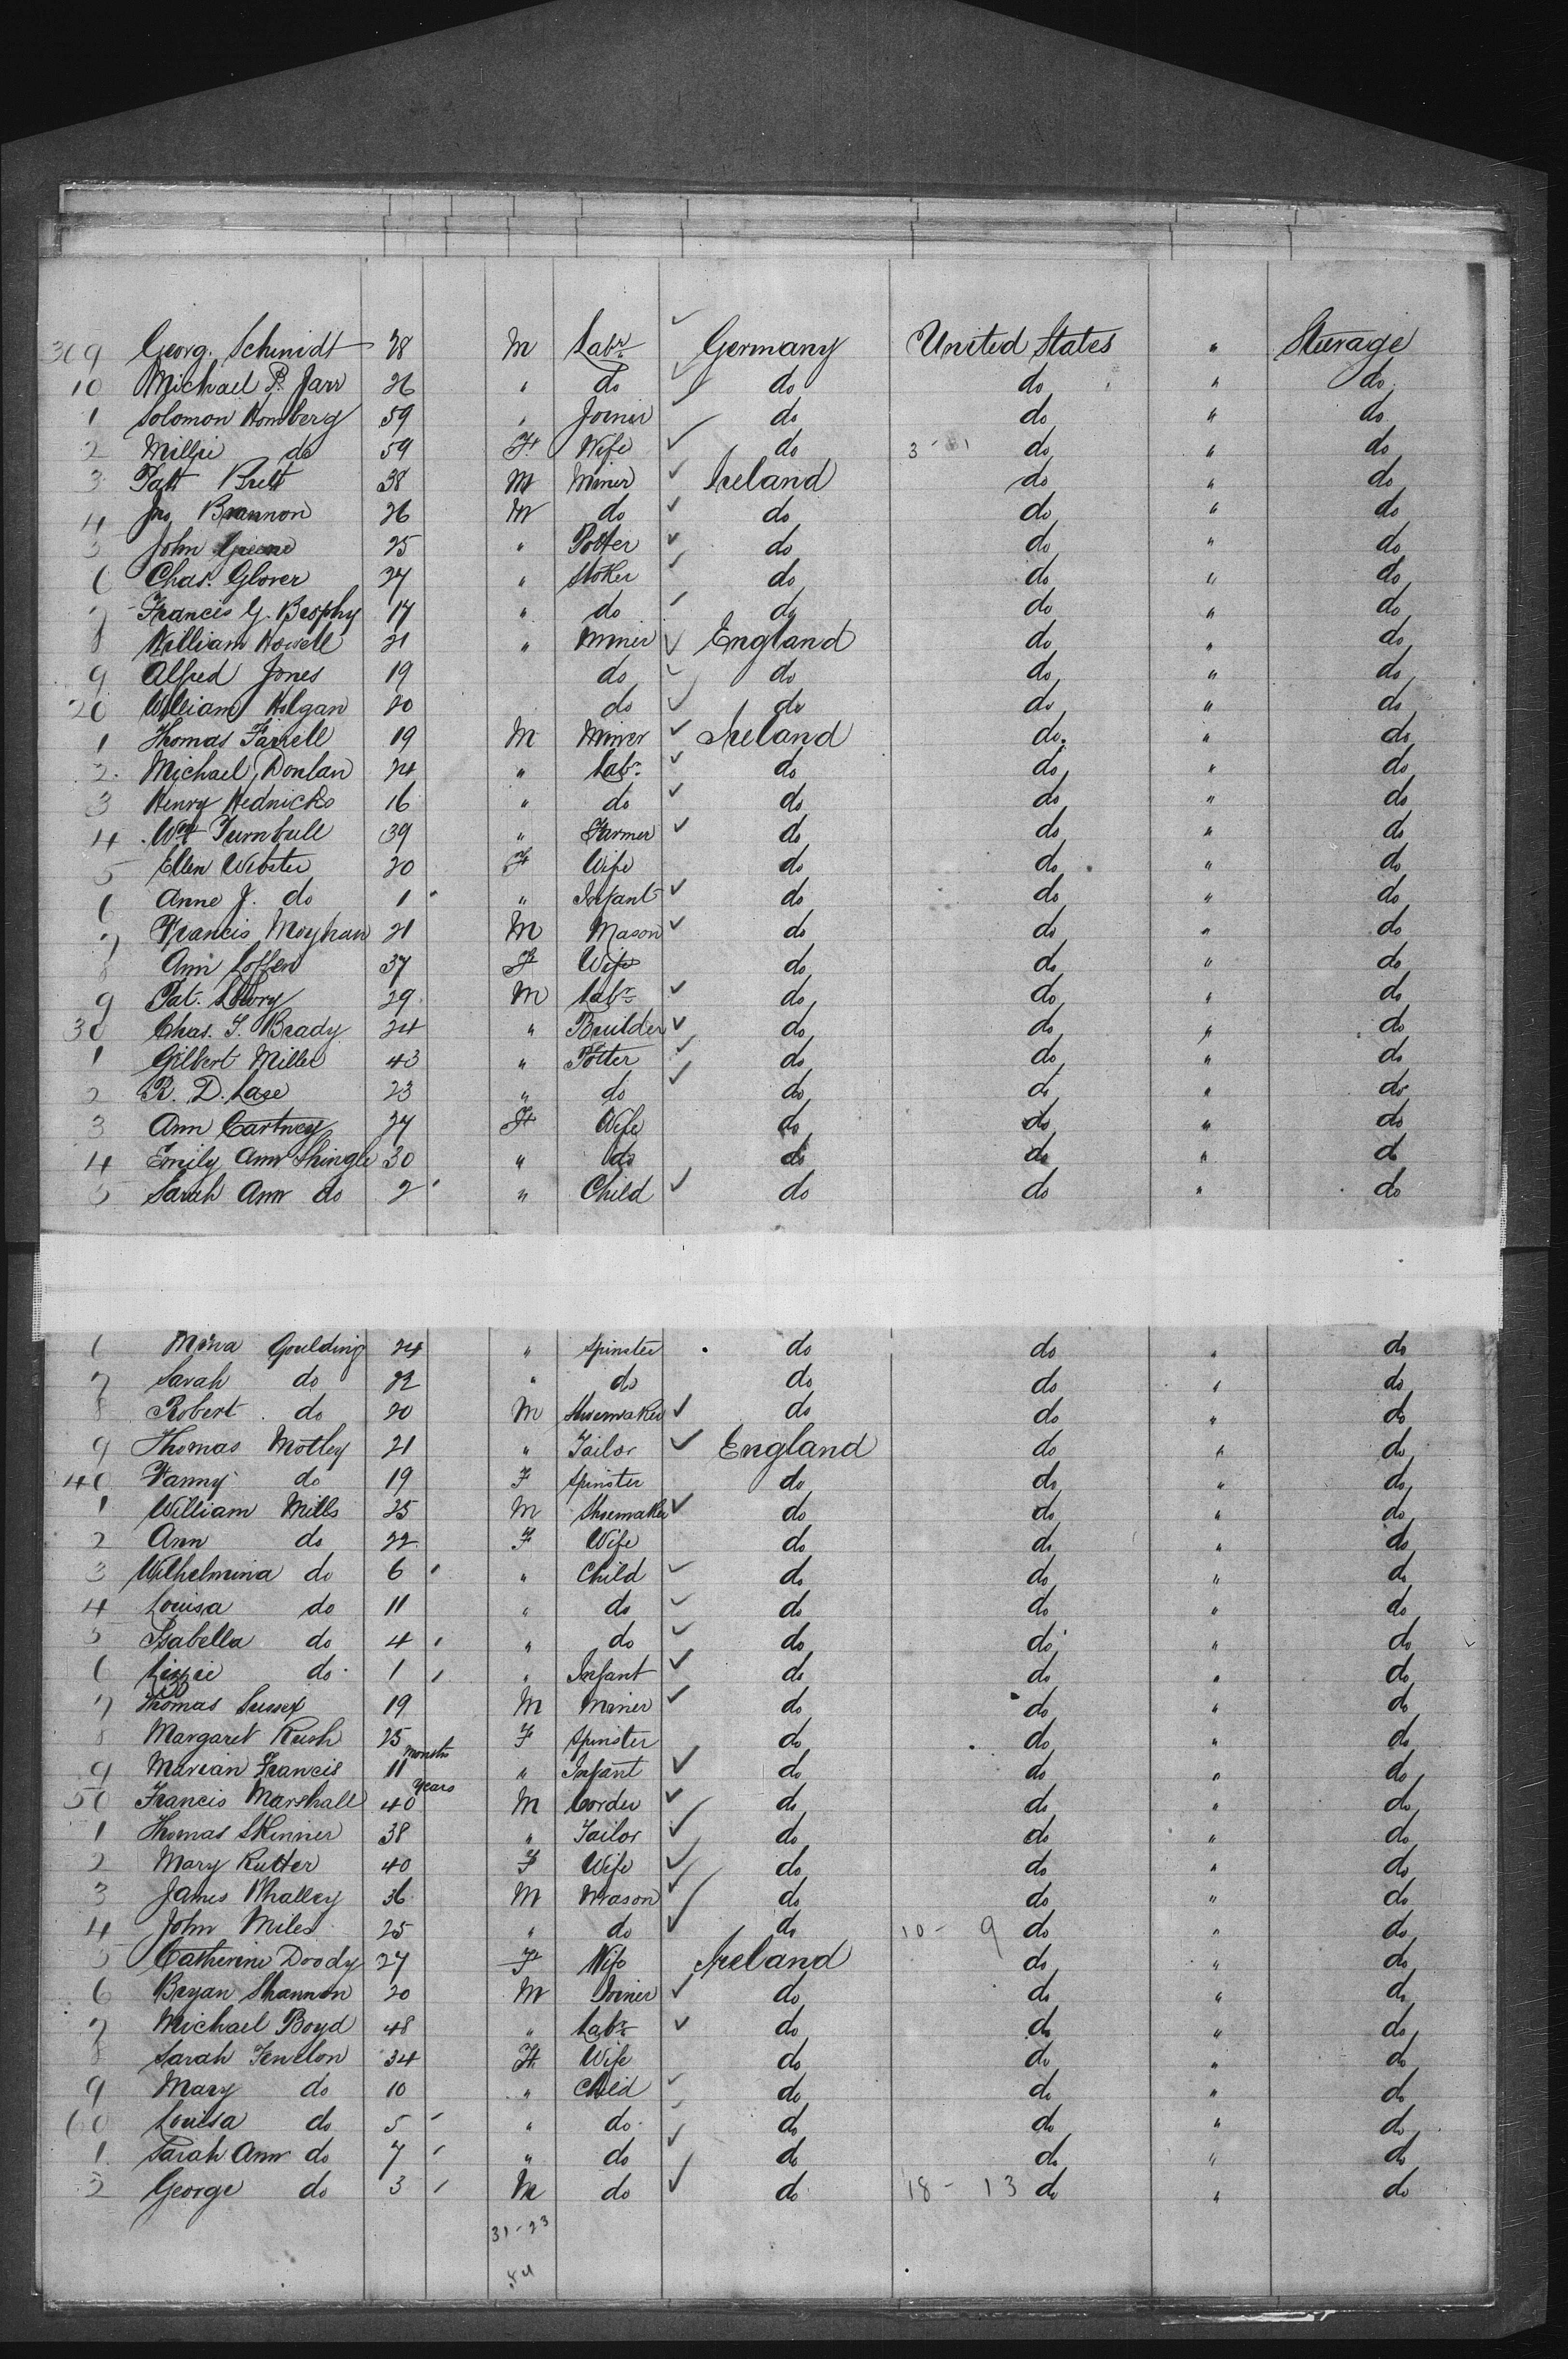 309 Georg. Schmidt 28 M Labr Germany United States " Steerage
10 Michael P. Jarr 26 " do do do " do
1 Solomon Homberg 59 " Joiner do do " do
2 Millie do 59 F Wife do 3 - 1 do " do
3 Patt Brett 38 M Miner Ireland do " do
4 Jno Brannon 26 M do do do " do
5 John Greene 25 " Potter do do " do
6 Chas. Glover 27 " Stoker do do " do
7 Francis Y. Brophy 17 " do do do " do
8 William Howell 21 " Miner England do " do
9 Alfred Jones 19 do do do " do
20 William Holgan 20 do do do " do
1 Thomas Farrell 19 M Miner Ireland do " do
2 Michael Donlan 24 " Labr do do " do
3 Henry Hednicks 16 " do do do " do
4 Wm Turnbull 39 " Farmer do do " do
5 Ellen Webster 20 F Wife do do " do
6 Anne J. do 1 " Infant do do " do
7 Francis Moyhan 21 M Mason do do " do
8 Ann 37 F Wife do do " do
9 Pat. Lowry 29 M Labr do do " do
30 Chas. J. Brady 24 " Builder do do " do
1 Gilbert Miller 43 " Potter do do " do
2 R. D. Lase 23 " do do do " do
3 Ann Cartney 27 F Wife do do " do
4 Emily Ann Shingle 30 " do do do " do
5 Sarah Ann do 2 " Child do do " do
6 Mina Goulding 24 " Spinster do do " do
7 Sarah do 22 " do do do " do
8 Robert do 20 M Shoemaker do do " do
9 Thomas Motley 21 " Tailor England do " do
40 Fanny do 19 F Spinster do do " do
1 William Mills 25 M Shoemaker do do " do
2 Ann do 22 F Wife do do " do
3 Wilhelmina do 6 " Child do do " do
4 Louisa do 11 " do do do " do
5 Isabella do 4 " do do do " do
6 Lizzie do 1 " Infant do do " do
7 Thomas Sussex 19 M Miner do do " do
8 Margaret Rush 25 F Spinster do do " do
9 Marian Francis 11 months " Infant do do " do
50 Francis Marshall 40 years M Corder do do " do
1 Thomas Skinner 38 " Tailor do do " do
2 Mary Rutter 40 F Wife do do " do
3 James Whalley 36 M Mason do do " do
4 John Miles 25 " do do 10 - 9 do " do
5 Catherine Doody 27 F Wife Ireland do " do
6 Bryan Shannon 20 M Joiner do do " do
7 Michael Boyd 48 " Labr do do " do
8 Sarah Fenelon 34 F Wife do do " do
9 Mary do 10 " Child do do " do
60 Louisa do 5 " do do do " do
1 Sarah Ann do 7 " do do do " do
2 George do 3 M do do 18 - 13 do " do
31 - 23
54